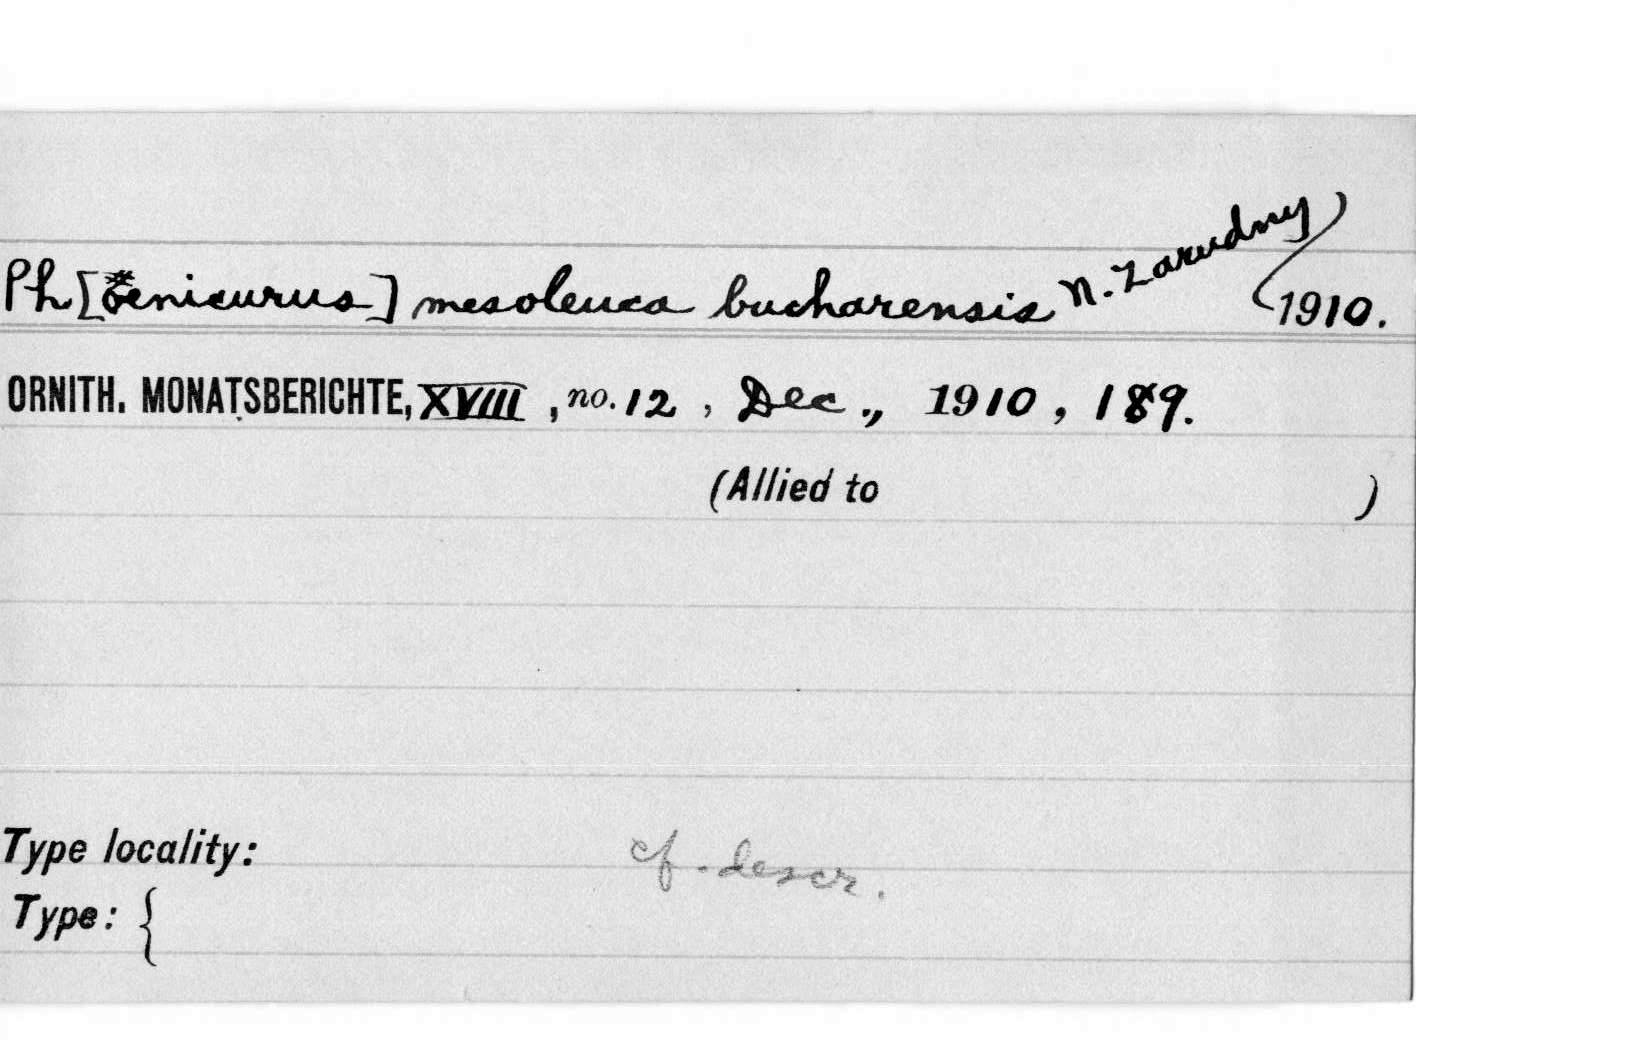 Ph[œnicurus] mesoleuca bucharensis N. Zarudny
1910.
ORNITH. MONATSBERICHTE, XVIII, no. 12, Dec., 1910, 189.
(Allied to )
Type locality: cf. descr.
Type: {